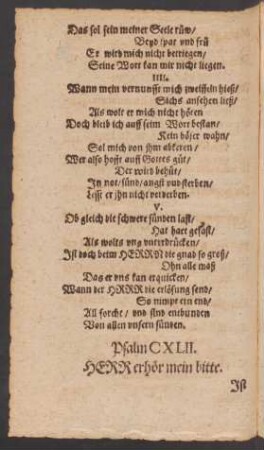 Das sol sein meiner Seele rüw/
Beyd spat vnd frü
Er wird mich nicht betriegen/
Seine Wort kan mir nicht liegen.
IIII.
Wann mein vernunfft mich zweiffeln hieß/
Sichs ansehen ließ/
Als wolt er mich nicht hören
Doch bleib ich auff seim Wort bestan/
Kein böser wahn/
Sol mich von jhm abkeren/
Wer also hofft auff Gottes güt/
Der wird behüt/
In not/sünd/angst vnd sterben/
Lesst er jhn nicht verderben.
V.
Ob gleich die schwere sünden last/
Hat hart gefast/
Als wolts vns vnterdrücken/
Ist doch beim HERRN die gnad so groß/
Ohn alle maß
Das er vns kan erquicken/
Wann der HERR die erlösung send/
So nimpt ein end/
All forcht/ vnd sind entbunden
Von allen vnsern sünden.
Psalm CXLII.
HERR erhör mein bitte.
Ist